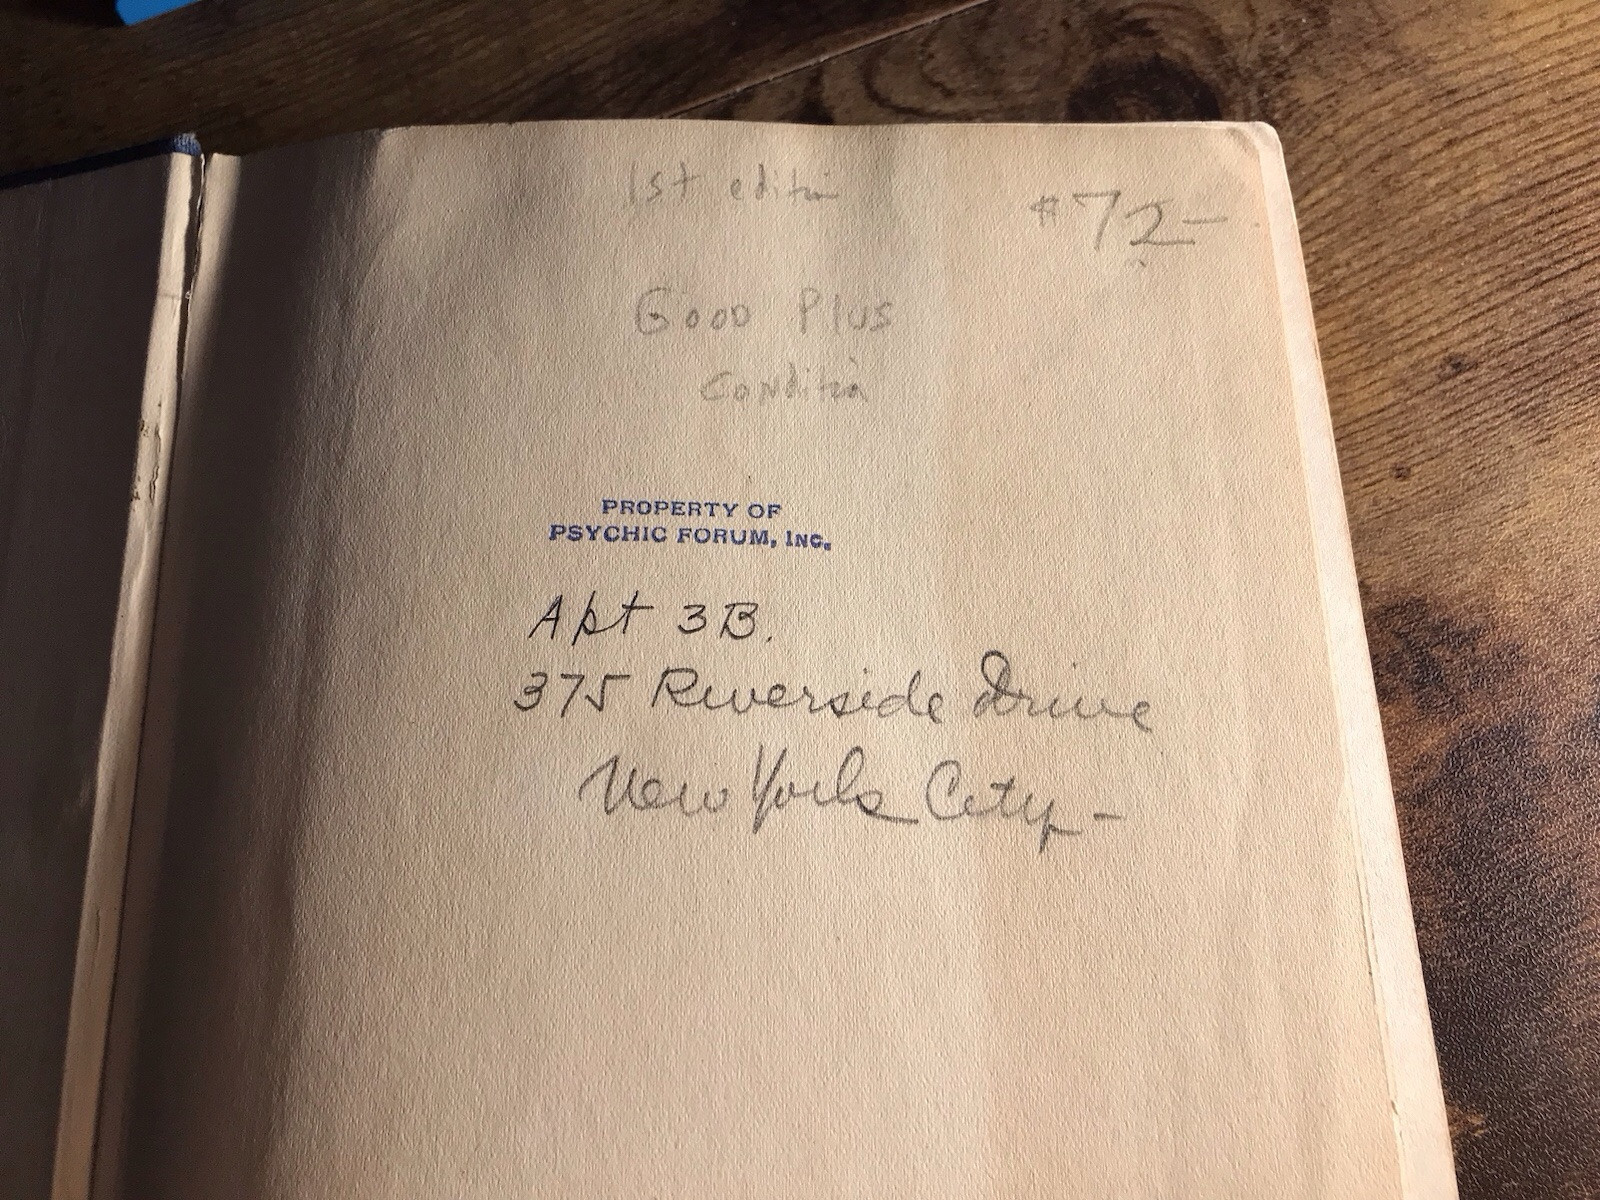 1st edition
$72-
Good Plus
Condition
PROPERTY OF
PSYCHIC FORUM, INC.
Apt 3B.
375 Riverside Drive
New York City-